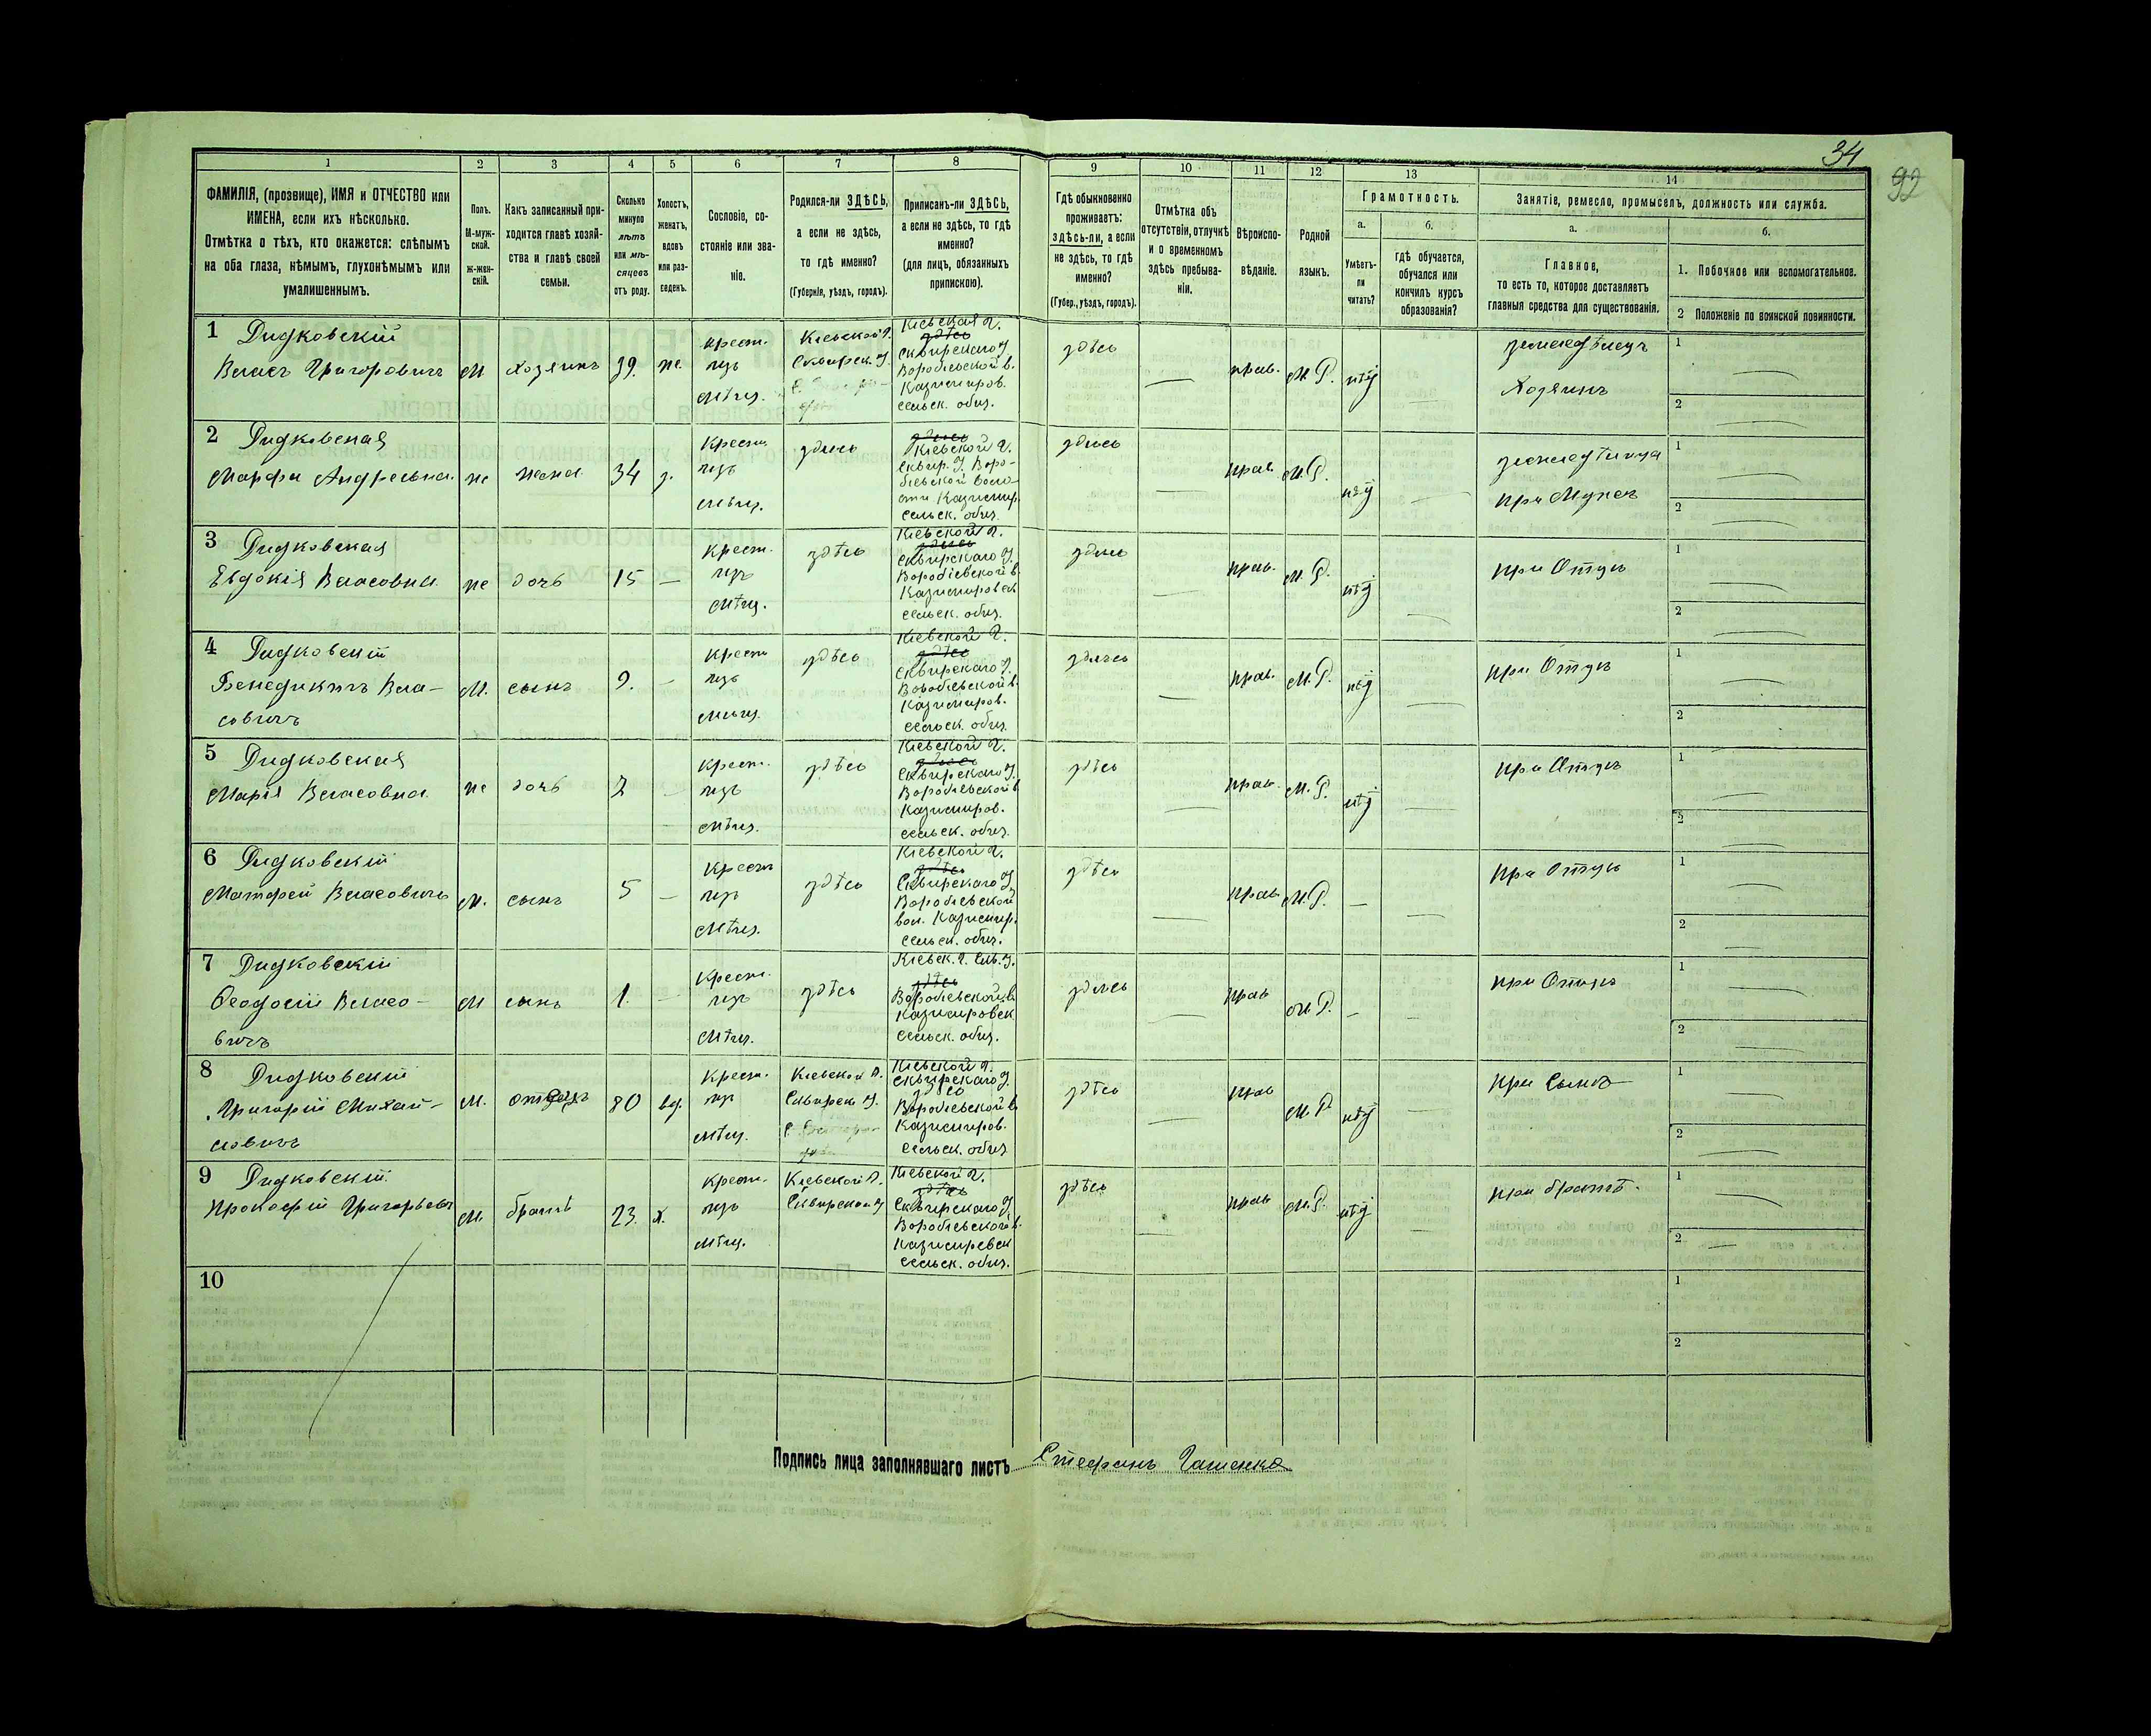 34
92
1 2 3 4 5 6 7 8 9 10 11 12 13 14
ФАМИЛІЯ, (прозвище), ИМЯ и ОТЧЕСТВО или
ИМЕНА, если ихъ нѣсколько.
Отмѣтка о тѣхъ, кто окажется: слѣпымъ
на оба глаза, нѣмымъ, глухонѣмымъ или
умалишеннымъ.
Полъ.
М-муж-
ской.
ж-жен-
скій.
Какъ записанный при-
ходится главѣ хозяй-
ства и главѣ своей
семьи.
Сколько
минуло
лѣтъ
или мѣ-
сяцевъ
отъ роду.
Холостъ,
женатъ,
вдовъ
или раз-
веденъ.
Сословіе, со-
стояніе или зва-
ніе.
Родился-ли ЗДѢСЬ,
а если не здѣсь,
то гдѣ именно?
(Губернія, уѣздъ, городъ).
Приписанъ-ли ЗДѢСЬ,
а если не здѣсь, то гдѣ
именно?
(для лицъ, обязанныхъ
припискою).
Гдѣ обыкновенно
проживаетъ:
здѣсь-ли, а если
не здѣсь, то гдѣ
именно?
(Губер., уѣздъ, городъ).
Отмѣтка объ
отсутствіи, отлучкѣ
и о временномъ
здѣсь пребыва-
ніи.
Вѣроиспо-
вѣданіе.
Родной
языкъ.
Грамотность.
а.
Умѣетъ-
ли
читать?
б.
гдѣ обучается,
обучался или
кончилъ курсъ
образованія?
Занятіе, ремесло, промыселъ, должность или служба.
а.
Главное,
то есть то, которое доставляетъ
главныя средства для существованія.
б.
1. Побочное или вспомогательное.
2 Положеніе по воинской повинности.
1 Дидковскій
Власъ Григоровичъ
М
хозяинъ
39.
же.
крест.
изъ
мѣщ.
Кіевской г.
Сквирск. у.
Кіевская г.
здѣсь
Сквирскаго у
Воробіевской в.
Казимиров.
сельск. общ.
здѣсь
—
прав.
М.Р.
нѣт
—
земледѣлецъ
Хозяинъ
1
2
2 Дидковская
Марфа Андреевна.
же
жена
34
з.
крест.
изъ
мѣщ.
здѣсь
здѣсь
Кіевской г.
Сквир. у. Воро-
біевской воло-
сти Казимир.
сельск. общ.
здѣсь
—
прав.
М.Р.
нѣт
—
земледѣлица
при Мужѣ
1
2
3 Дидковская
Евдокія Власовна
же
дочь
15
—
крест.
изъ
мѣщ.
здѣсь
Кіевской г.
здѣсь
Сквирскаго у.
Воробіевской в.
Казимировск
сельск. общ.
здѣсь
—
прав.
М.Р.
нѣт
—
при Отцѣ
1
2
4 Дидковскій
Бенедиктъ Вла-
совичъ
М.
сынъ
9.
—
крест
изъ
мѣщ.
здѣсь
Кіевской г.
здѣсь
Сквирскаго у.
Воробіевской в.
Казимиров.
сельск. общ.
здѣсь
—
прав.
М.Р.
нѣт
—
при Отцѣ
1
2
5 Дидковская
Марія Власовна
же
дочь
7
—
крест.
изъ
мѣщ.
здѣсь
Кіевской г.
здѣсь
Сквирскаго у.
Воробіевской в
Казимиров.
сельск. общ.
здѣсь
—
прав.
М.Р.
нѣт
—
при Отцѣ
1
2
6 Дидковскій
Матфей Власовичъ
М.
сынъ
5
—
крест
изъ
мѣщ.
здѣсь
Кіевской г.
здѣсь
Сквирскаго у
Воробіевской
вол. Казимир.
сельск. общ.
здѣсь
—
прав.
М.Р.
—
—
при Отцѣ
1
2
7 Дидковскій
Ѳеодосій Власо-
вичъ
М
сынъ
1.
—
крест.
изъ
мѣщ.
здѣсь
Кіевск. г. Скв. у.
здѣсь
Воробіевской в.
Казимировск
сельск. общ.
здѣсь
—
прав
М.Р.
—
—
при Отцѣ
1
2
8 Дидковскій
Григорій Михай-
ловичъ
М.
отецъ
80
вд.
крест.
изъ
мѣщ.
Кіевской г.
Сквирск у.
Кіевской г.
Сквирскаго у.
здѣсь
Воробіевской в
Казимиров.
сельск. общ
здѣсь
—
прав
М.Р
нѣт
—
при Сынѣ
1
2
9 Дидковскій.
Прокофій Григорьевъ
М.
братъ
23.
х.
крест.
изъ
мѣщ.
Кіевской г.
Сквирской у
Кіевской г.
здѣсь
Сквирскаго у.
Воробіевской в.
Казимировск
сельск. общ.
здѣсь
—
прав
М.Р.
нѣт
—
при братѣ.
1
2
10
1
2
Подпись лица заполнявшаго листъ Стефанъ Гашенко